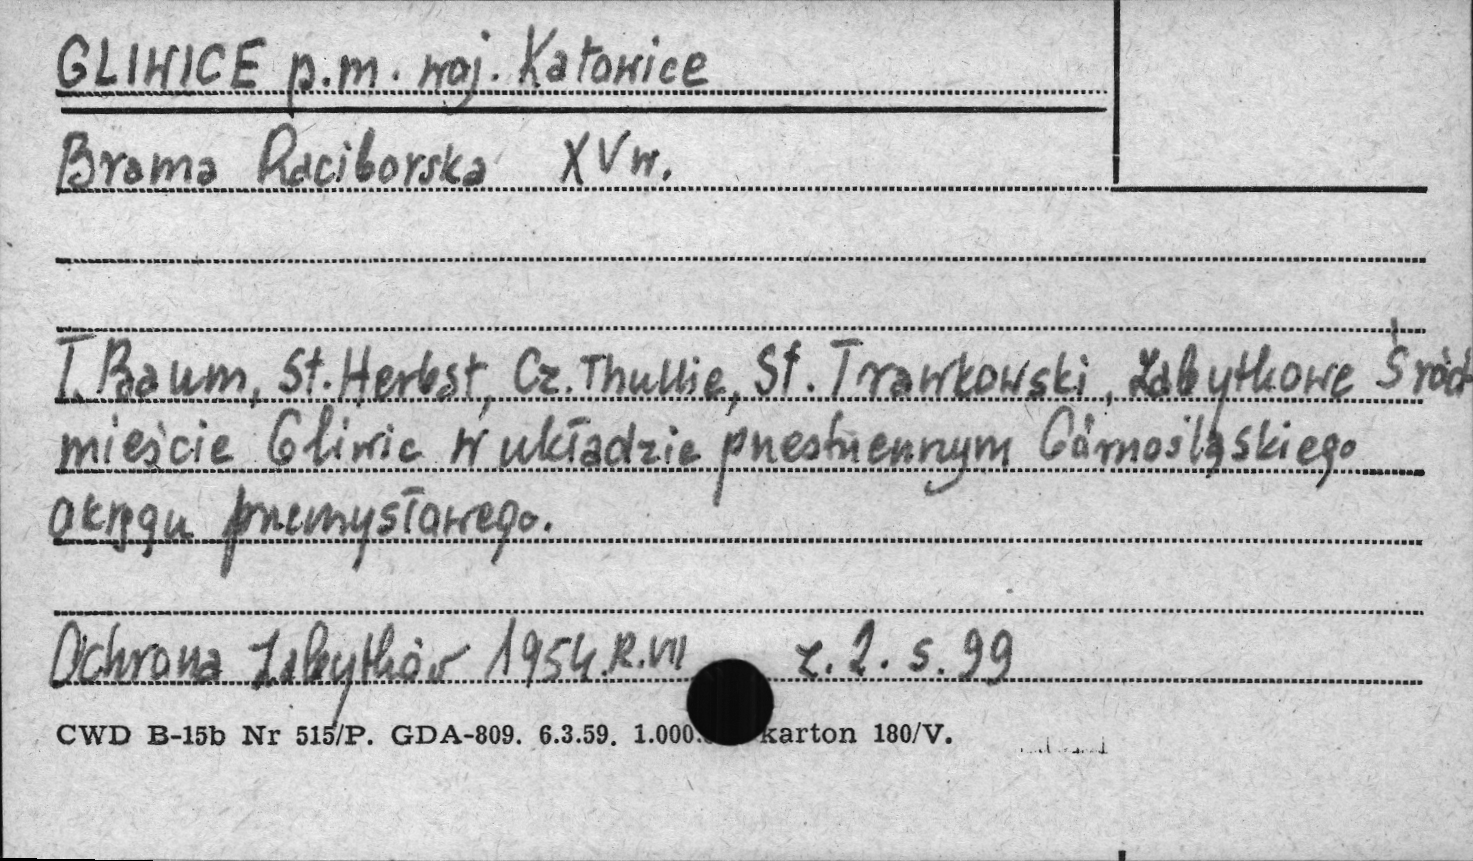 GLIWICE p.m. woj. Katowice
Brama Raciborska XV w.
T. Baum, St. Herbst, Cz. Thullie, St. Trawkowski, Zabytkowe Śród
mieście Gliwic w układzie przestrzennym Górnośląskiego
okręgu przemysłowego.
Ochrona Zabytków 1954. R. VII z. 2. s. 99
CWD B-15b Nr 515/P. GDA-809. 6.3.59. 1.000. karton 180/V.